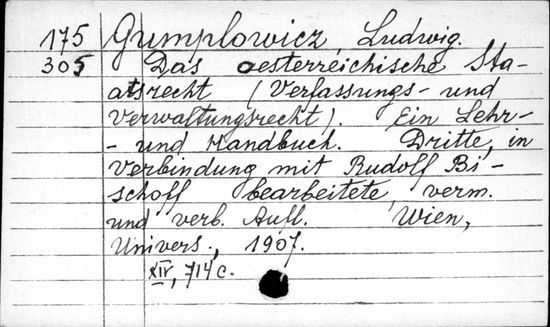 175 Gumplowicz, Ludwig.
305 Das oesterreichische Sta-
atsrecht (Verfassungs- und
Verwaltungsrecht). Ein Lehr-
- und Handbuch. Dritte, in
Verbindung mit Rudolf Bi-
schoff bearbeitete, verm.
und verb. Aufl. Wien,
Univers., 1907.
XIV, 714 c.